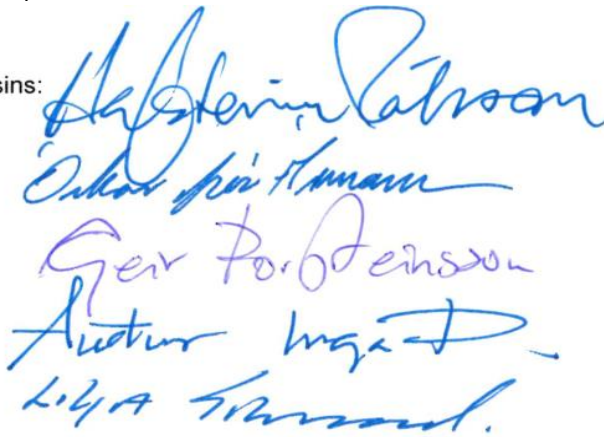 sins: Hafsteinn Pálsson
Óskar Þór
Geir Þorsteinsson
Auður Inga Þ.
Lilja